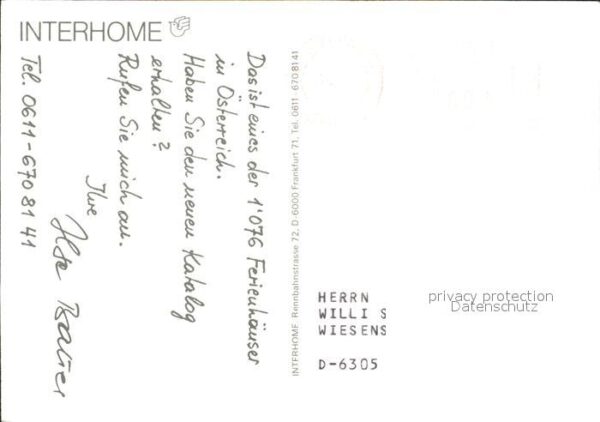 INTERHOME
Das ist eines der 1'076 Ferienhäuser
in Österreich.
Haben Sie den neuen Katalog
erhalten?
Rufen Sie mich an.
Ihre
Ilse
Tel. 0611-670 81 41
INTERHOME, Rennbahnstrasse 72, D-6000 Frankfurt 71, Tel. 0611 - 6708141
HERRN
WILLI S
WIESENS
D-6305
privacy protection
Datenschutz